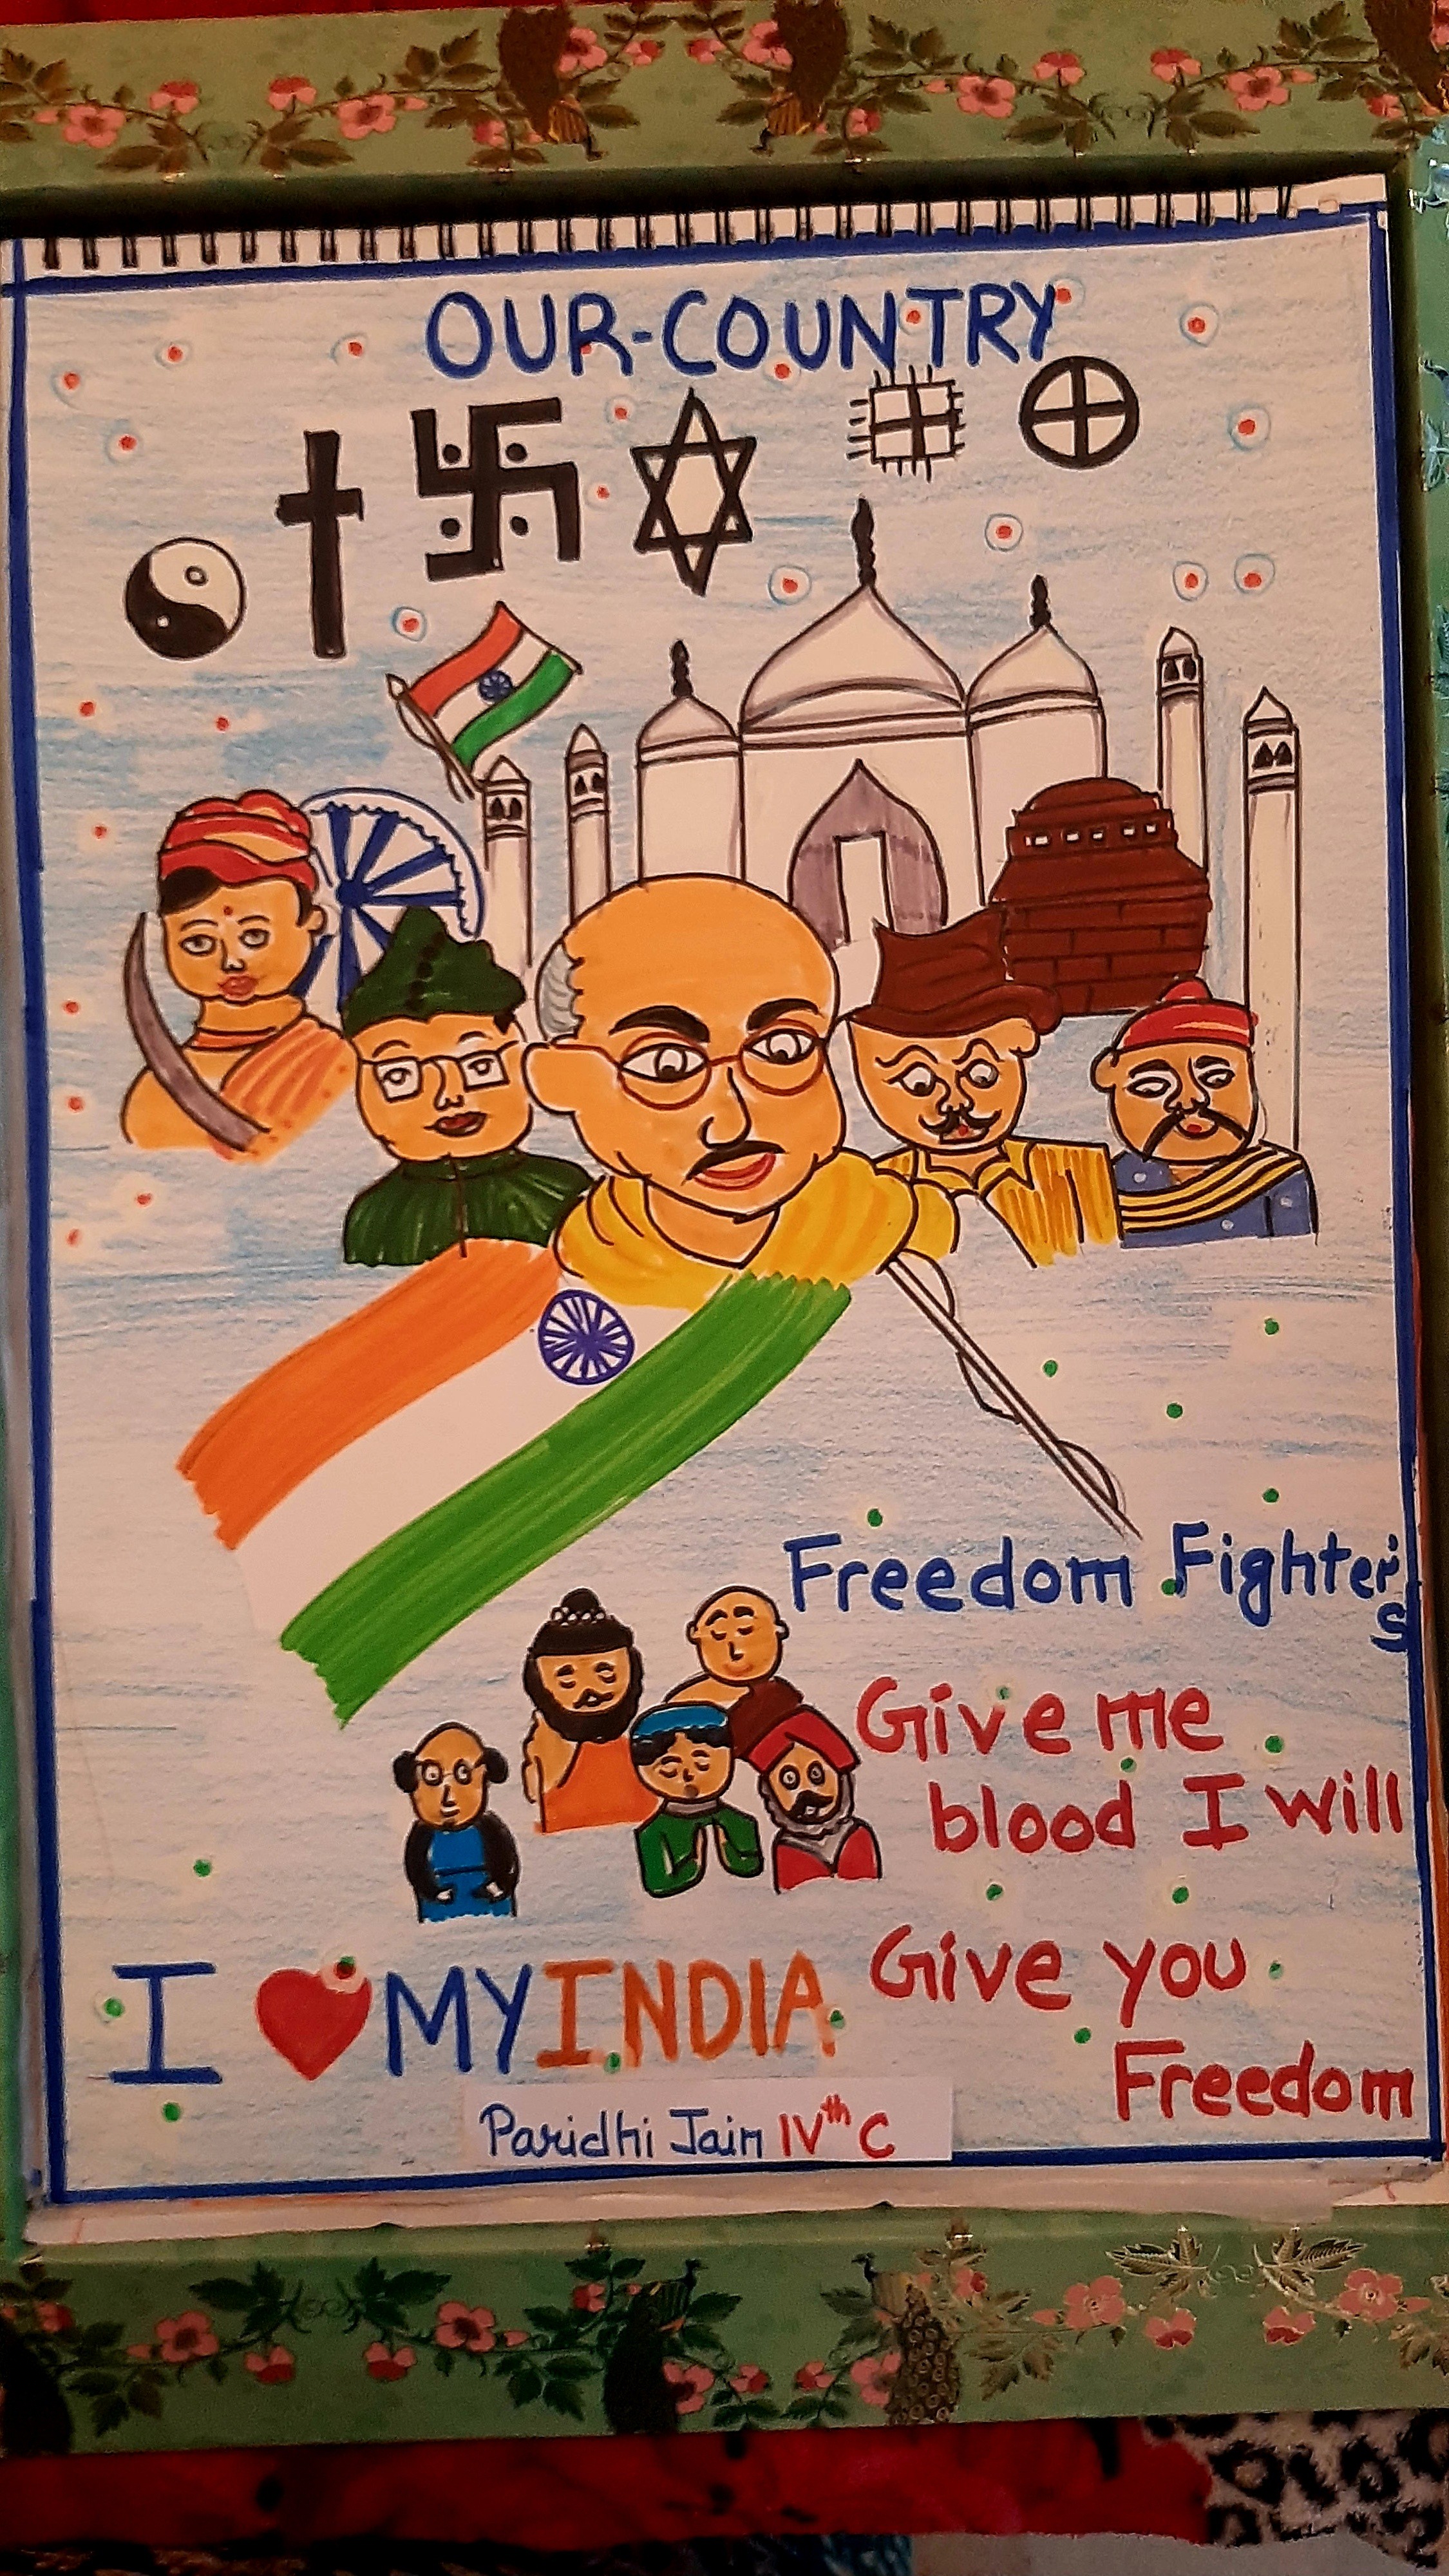 OUR-COUNTRY
Freedom Fighter's
Give me
blood I will
Give you
Freedom
I ❤ MY INDIA
Paridhi Jain IVth C